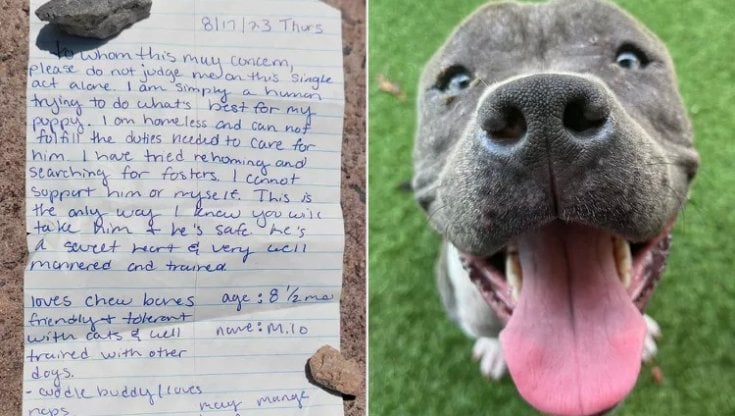 8/17/23 Thurs
To whom this may concern,
please do not judge me on this single
act alone. I am simply a human
trying to do what's best for my
puppy. I am homeless and can not
fulfill the duties needed to care for
him. I have tried rehoming and
searching for fosters. I cannot
support him or myself. This is
the only way I know you will
take him + he's safe. he's
a sweet heart & very well
mannered and trained
loves chew bones age: 8 1/2 mo
friendly + tolerant
with cats & well name: Milo
trained with other
dogs.
- cuddle buddy/loves
naps may mange